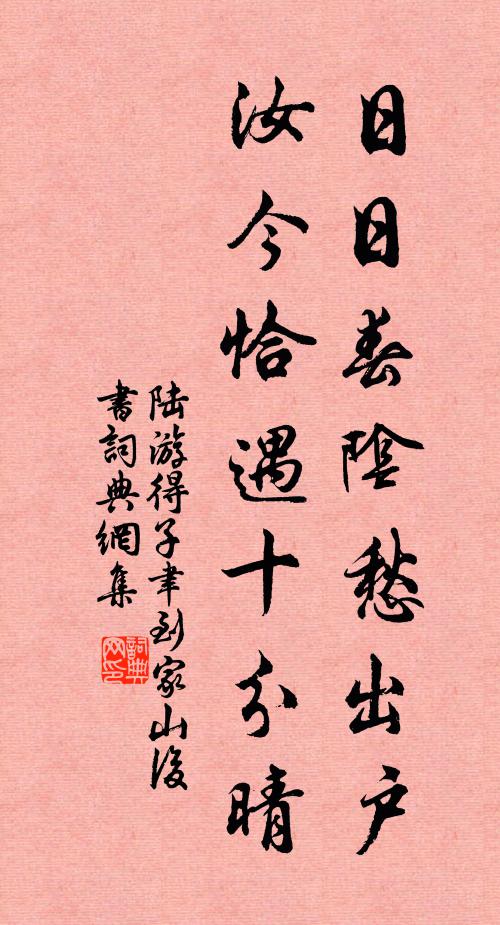 日日春陰愁出户
汝今恰遇十分晴
陆游得子聿到家山後
書詞典網集
詞典
网印